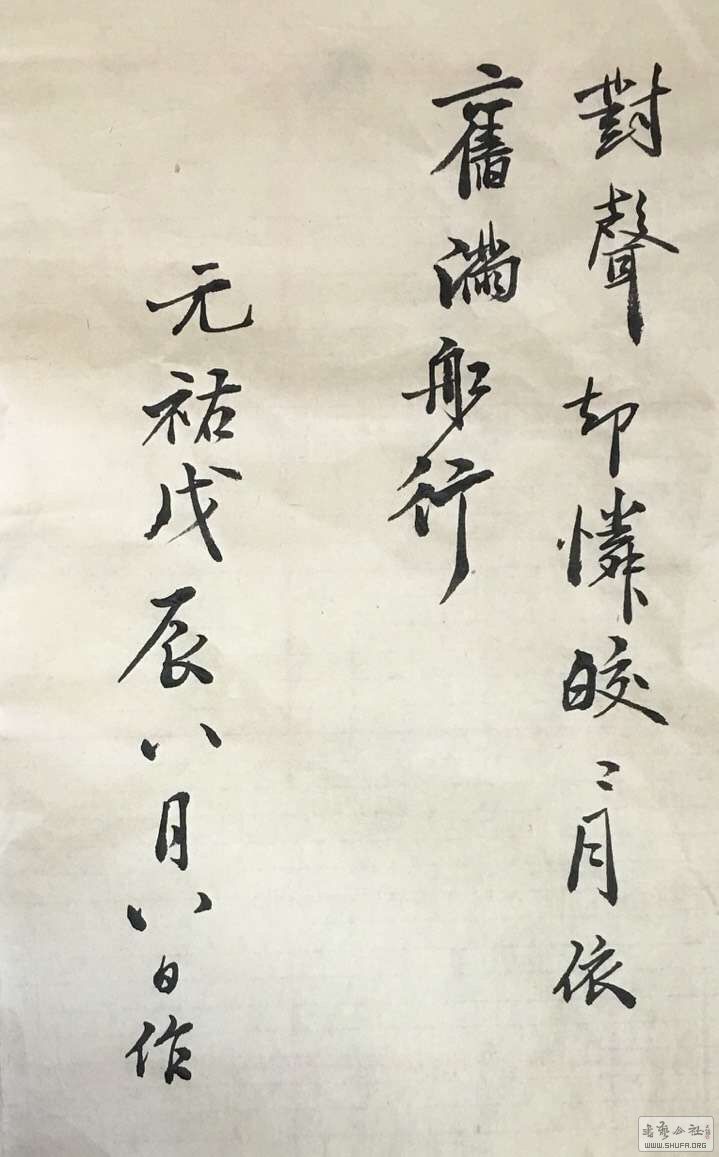 對聲却憐皎〻月依
舊滿船行
元祐戊辰八月八日作
書藝公社
WWW.SHUFA.ORG